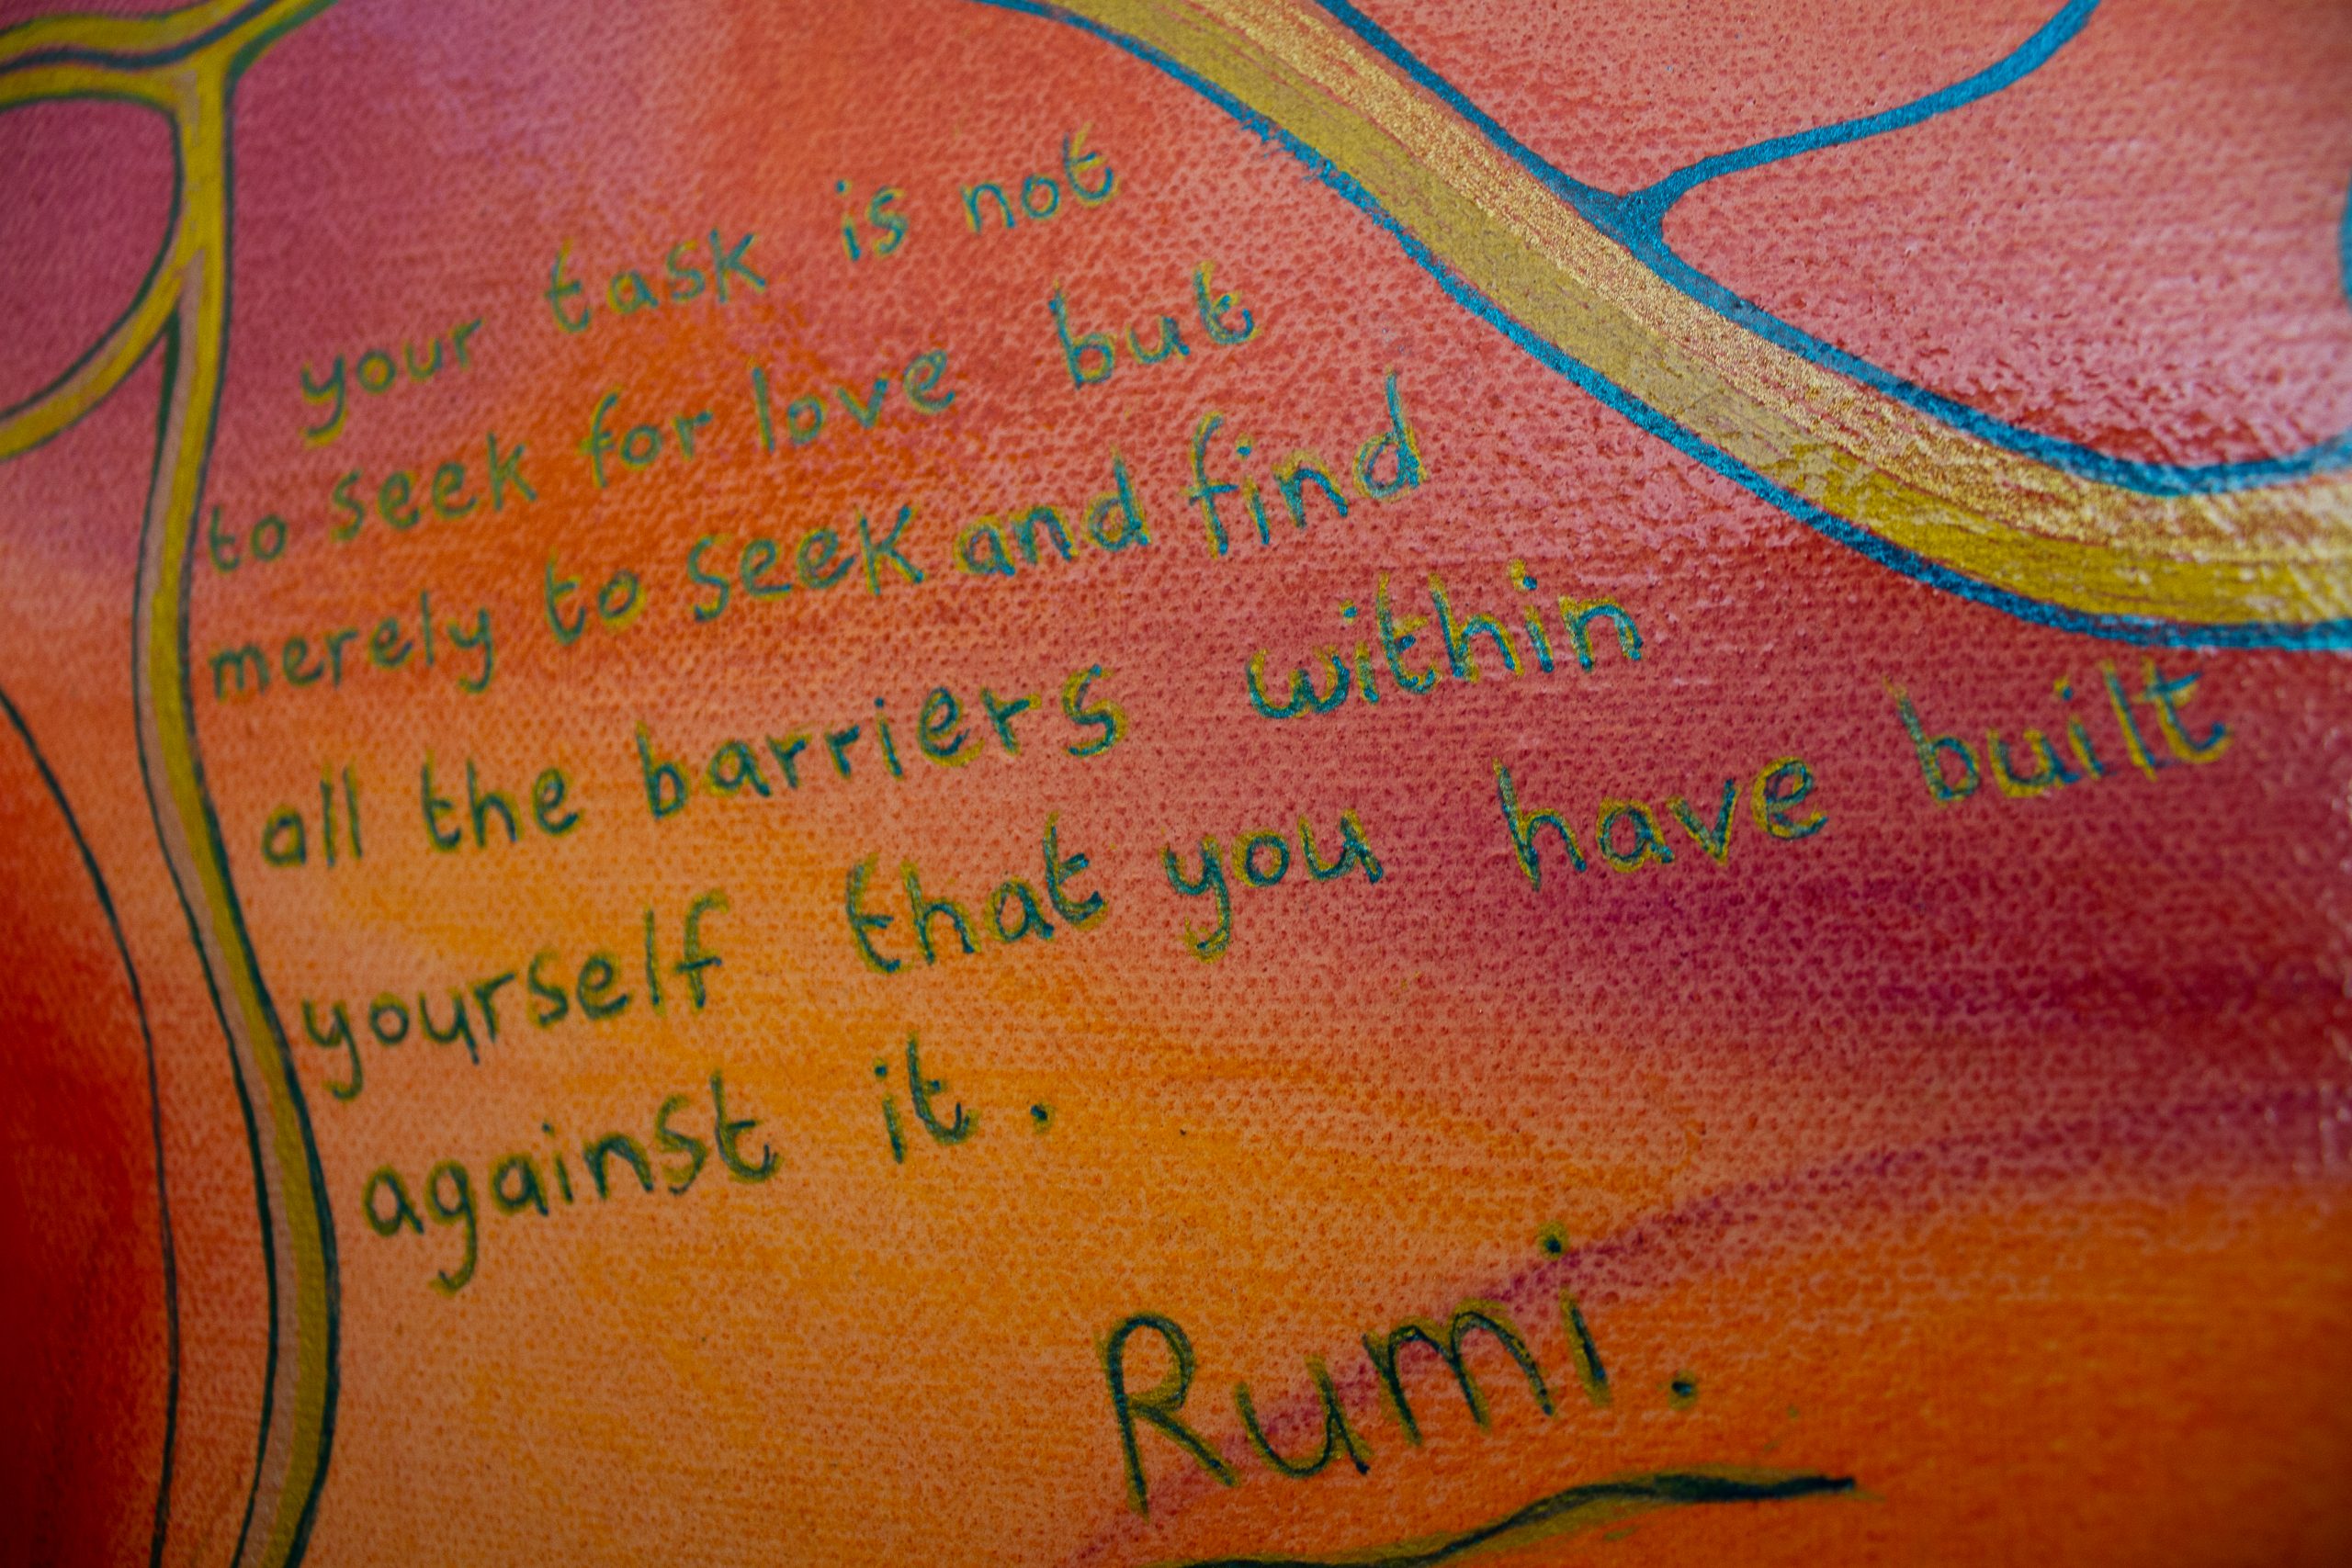 your task is not
to seek for love but
merely to seek and find
all the barriers within
yourself that you have built
against it.
Rumi.